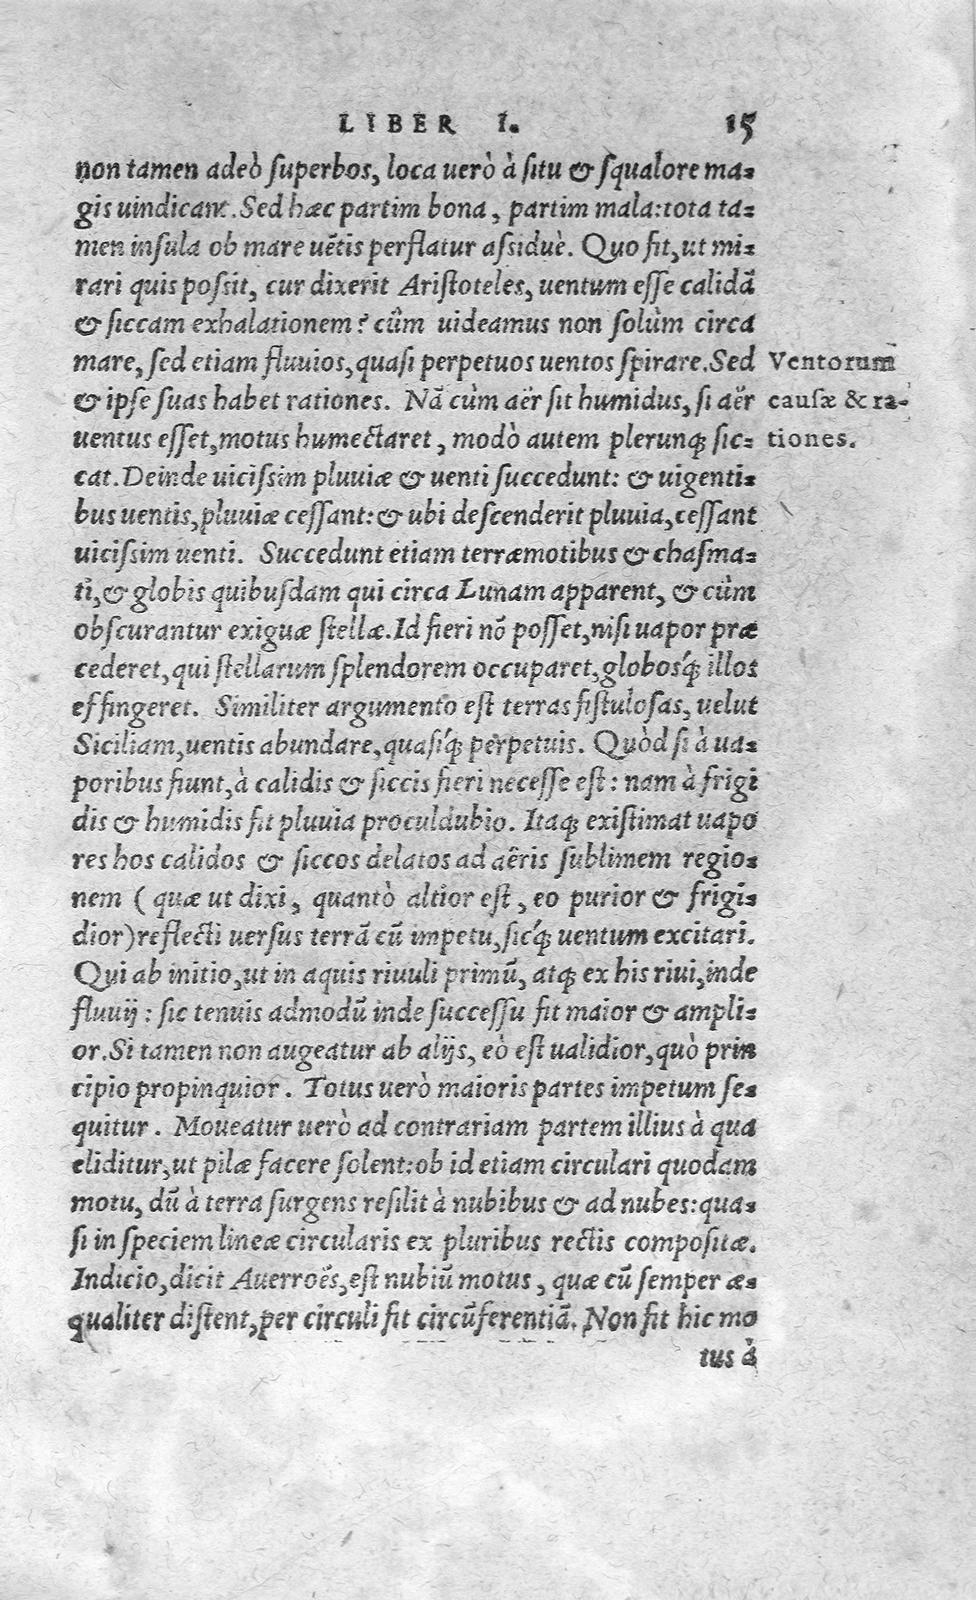 LIBER I. 15
non tamen adeò ſuperbos, loca uerò à ſitu & ſqualore ma-
gis uindicant. Sed hæc partim bona, partim mala: tota ta-
men inſula ob mare uẽtis perflatur aſsiduè. Quo fit, ut mi-
rari quis poſsit, cur dixerit Ariſtoteles, uentum eſſe calidã
& ſiccam exhalationem? cùm uideamus non ſolùm circa
mare, ſed etiam fluuios, quaſi perpetuos uentos ſpirare. Sed
Ventorum
& ipſe ſuas habet rationes. Nã cùm aër ſit humidus, ſi aër
cauſæ & ra-
uentus eſſet, motus humectaret, modò autem plerunq; ſic-
tiones.
cat. Deinde uiciſsim pluuiæ & uenti ſuccedunt: & uigenti-
bus uentis, pluuiæ ceſſant: & ubi deſcenderit pluuia, ceſſant
uiciſsim uenti. Succedunt etiam terræmotibus & chaſma-
ti, & globis quibuſdam qui circa Lunam apparent, & cùm
obſcurantur exiguæ ſtellæ. Id fieri nõ poſſet, niſi uapor præ
cederet, qui ſtellarum ſplendorem occuparet, globosq́; illos
effingeret. Similiter argumento eſt terras fiſtuloſas, uelut
Siciliam, uentis abundare, quaſiq́; perpetuis. Quòd ſi à ua-
poribus fiunt, à calidis & ſiccis fieri neceſſe eſt: nam à frigi
dis & humidis fit pluuia proculdubio. Itaq; exiſtimat uapo
res hos calidos & ſiccos delatos ad aëris ſublimem regio-
nem ( quæ ut dixi, quantò altior eſt, eo purior & frigi-
dior) reflecti uerſus terrã cũ impetu, ſicq́; uentum excitari.
Qui ab initio, ut in aquis riuuli primũ, atq; ex his riui, inde
fluuij: ſic tenuis admodũ inde ſucceſſu fit maior & ampli-
or. Si tamen non augeatur ab alijs, eò eſt ualidior, quò prin
cipio propinquior. Totus uerò maioris partes impetum ſe-
quitur. Moueatur uerò ad contrariam partem illius à qua
eliditur, ut pilæ facere ſolent: ob id etiam circulari quodam
motu, dũ à terra ſurgens reſilit à nubibus & ad nubes: qua-
ſi in ſpeciem lineæ circularis ex pluribus rectis compoſitæ.
Indicio, dicit Auerroës, eſt nubiũ motus, quæ cũ ſemper æ-
qualiter diſtent, per circuli fit circũferentiã. Non fit hic mo
tus à